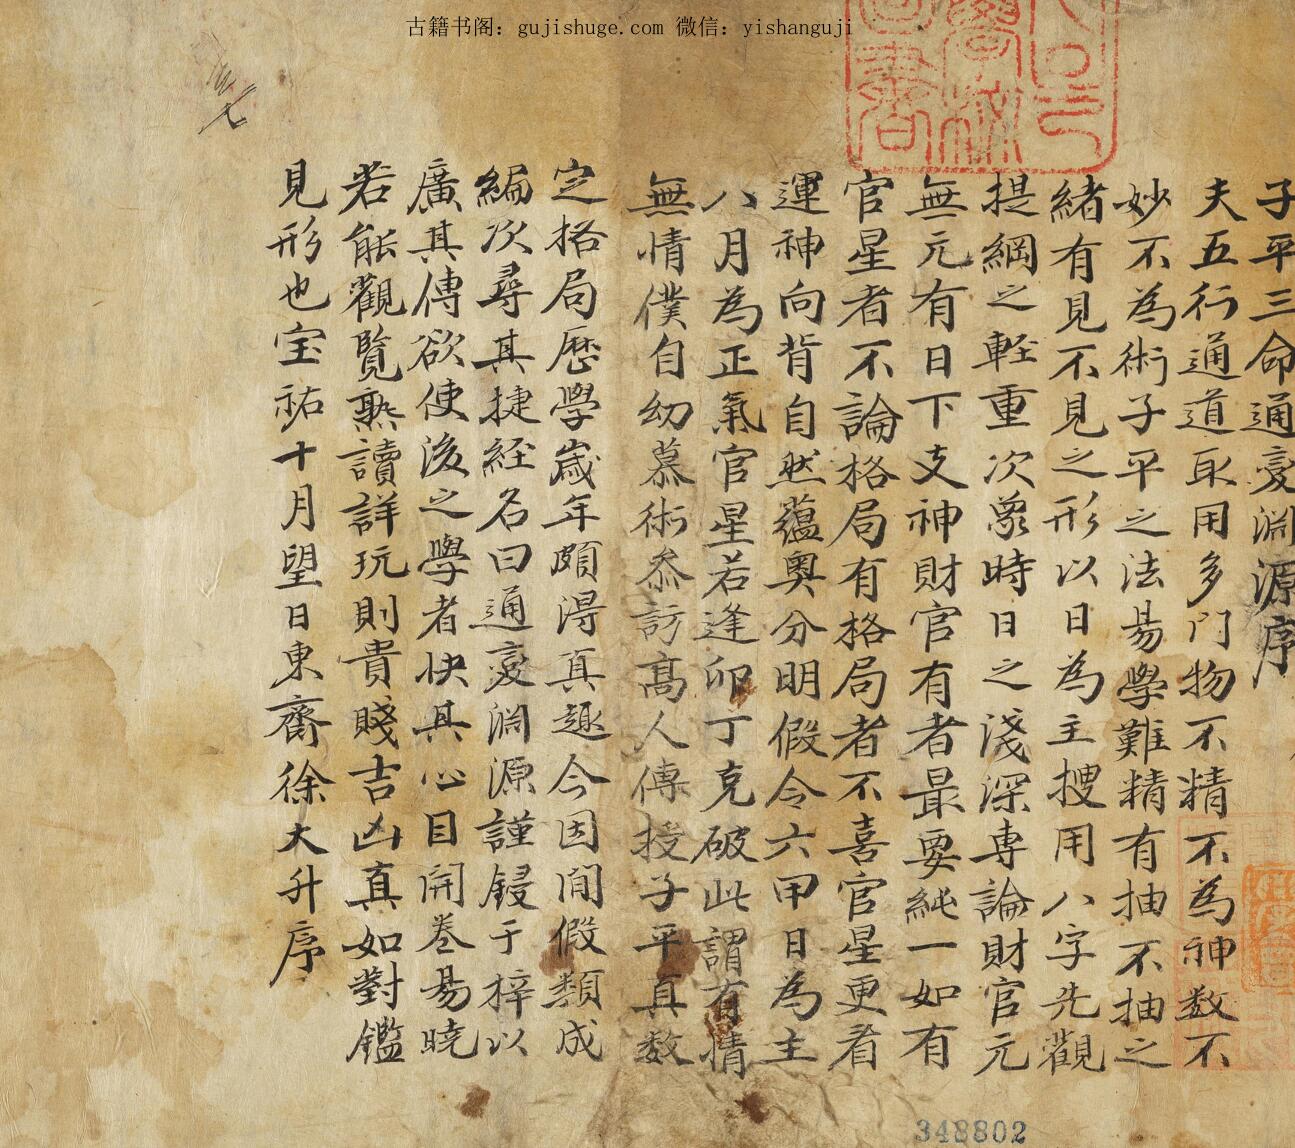 古籍书阁：gujishuge.com 微信：yishanguji
子平三命通变淵源序
夫五行通道取用多门物不精不為神数不
妙不為術子平之法易學難精有抽不抽之
緒有見不見之形以日為主搜用八字先觀
提綱之輕重次象時日之淺深専論財官元
無元有日下支神財官有者最要純一如有
官星者不論格局有格局者不喜官星更看
運神向背自然蘊奧分明假令六甲日為主
八月為正氣官星若逢卯丁克破此謂有情
無情僕自幼慕術叅訪髙人傳授子平真数
定格局歷學歲年頗淂真趣今因閒假類成
編次尋其捷経名曰通变淵源謹鋟于梓以
廣其傳欲使後之學者快其心目開卷易曉
若能觀覽熟讀詳玩則貴賤吉凶真如對鑑
見形也宝祐十月望日東齋徐大升序
348802